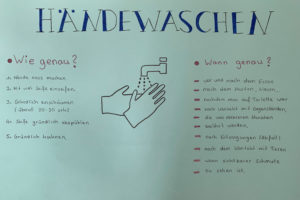 HÄNDEWASCHEN
Wie genau?
1. Hände nass machen
2. Mit Seife einseifen
3. Gründlich einschäumen
(überall 20-30 sek)
4. Seife gründlich abspühlen
5. Gründlich trocknen
Wann genau?
vor und nach dem Essen
nach dem Husten, Niesen,
nachdem man auf Toilette war
nach Kontakt mit Gegenständen,
die von mehreren Händen
berührt werden,
nach Entsorgungen (Abfall)
nach dem Kontakt mit Tieren
wenn sichtbarer Schmutz
zu sehen ist